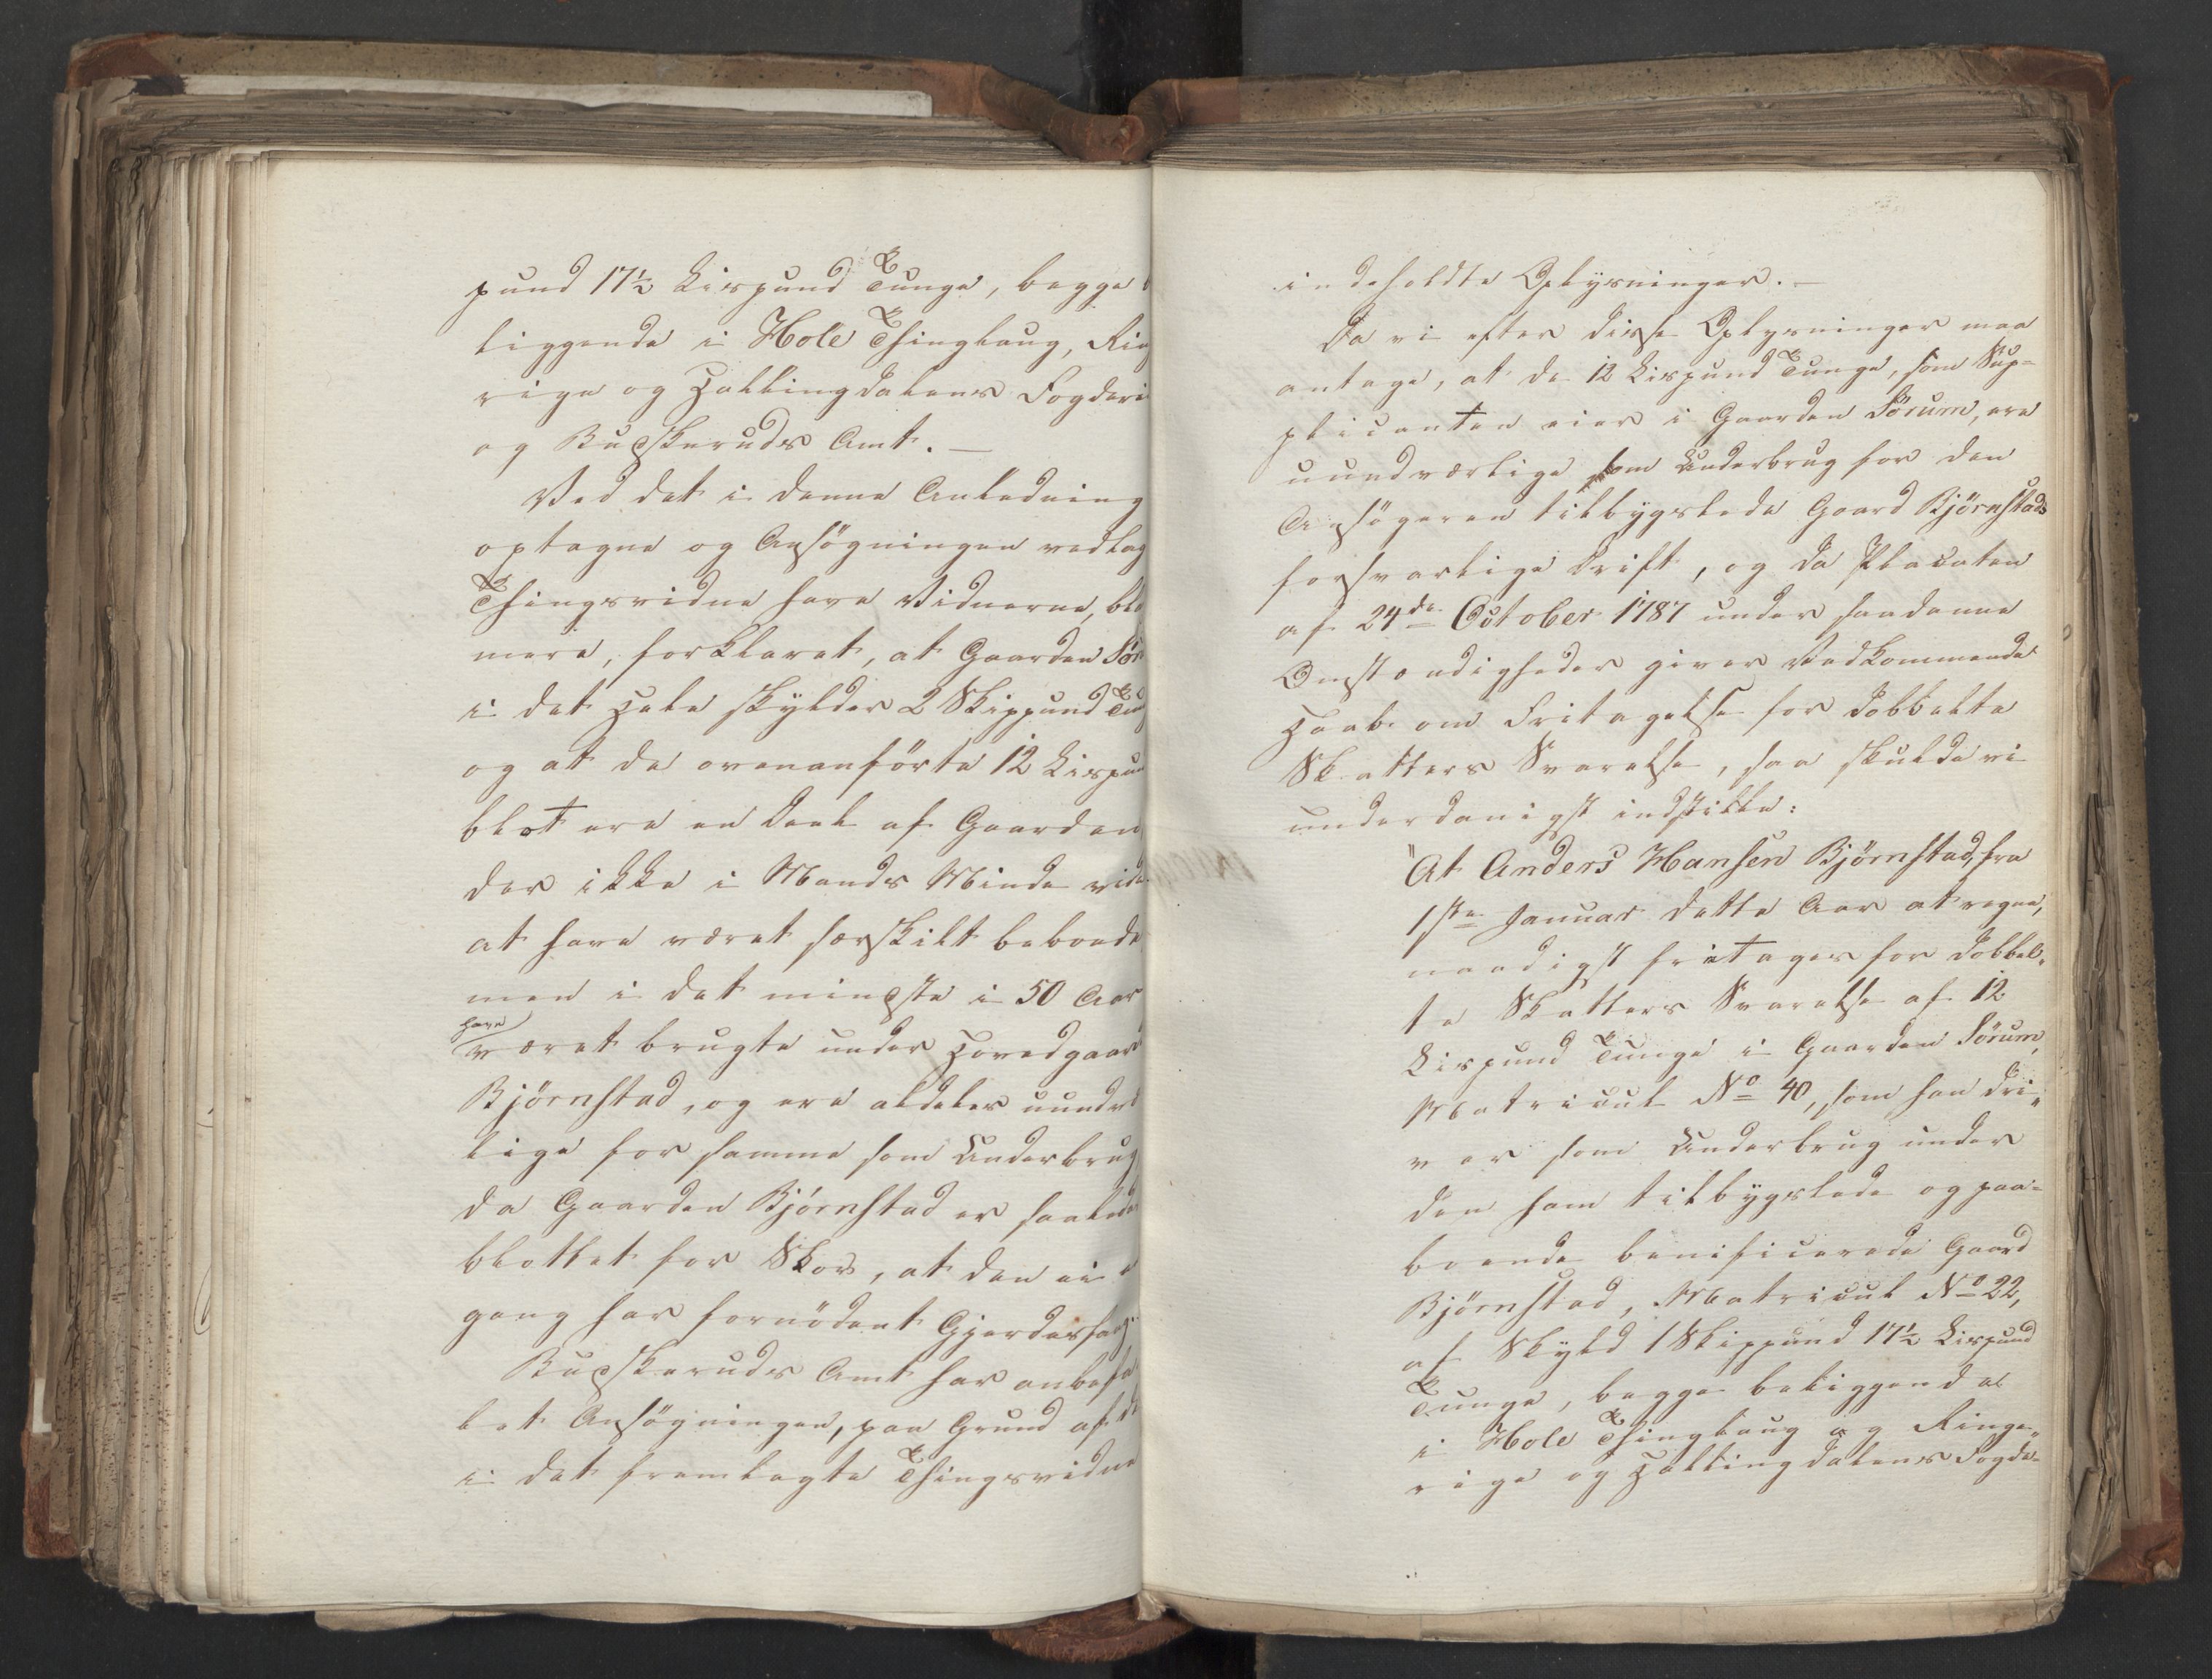 pund 17½ Lispund Tunge, begge b
liggende i Hole Thinglaug, Ring
rige og Hallingdalens Fogderi
og Budskeruds Amt. —
Ved det i denne Anledning
optagne og Ansøgningen vedlag
Thingsvidne have Vidnerne, bl
mere, forklaret, at Gaarden Sør
i det Hele skylder 2 Skippund Tung
og at de ovenanførte 12 Lispun
blot ere en Deel af Gaarden
der ikke i Mands Minde vid
at have været særskilt beboede
men i det mindste i 50 Aar
have
været brugte under Hovedgaard
Bjørnstad, og ere aldeles uundvæ
lige for samme som Underbrug
da Gaarden Bjørnstad er saaledes
blottet for Skov, at den ei e
gang har fornødent Gjerdesfang.
Budskeruds Amt har anbefa
let Ansøgningen, paa Grund af de
i det fremlagte Thingsvidne
indeholdte Oplysninger. —
Da vi efter disse Oplysninger maa
antage, at de 12 Lispund Tunge, som Sup=
plicanten eier i Gaarden Sørum, ere
uundværlige som Underbrug for den
Ansøgeren tilbygslede Gaard Bjørnstads
forsvarlige Drift, og da Placaten
af 24de October 1787 under saadanne
Omstændigheder giver Vedkommende
Haab om Fritagelse for dobbelte
Skatters Svarelse, saa skulde vi
underdanigst indstille:
"At Anders Hansen Bjørnstad, fra
1ste Januar dette Aar at regne,
naadigst fritages for dobbel=
te Skatters Svarelse af 12
Lispund Tunge i Gaarden Sørum,
Matricul No 40, som han dri=
ver som Underbrug under
den ham tilbygslede og paa=
boende benificerede Gaard
Bjørnstad, Matricul No 22,
af Skyld 1 Skippund 17½ Lispund
Tunge, begge beliggende
i Hole Thinglaug og Ringe=
rige og Hallingdalens Fogde=